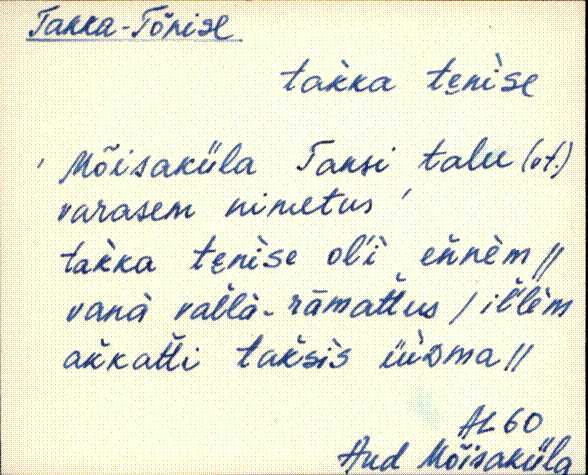 Takka-Tõnise
tak̀ka tẹnìse
' Mõisaküla Taksi talu (vt.)
varasem nimetus '
tak̀ka tẹnìse ol'ì en̆nèm //
vanà val̆là-rāmat̆tus / il̆l'èm
ak̆kat̆ti tak̆sìs üìdma //
AL 60
Aud Mõisaküla